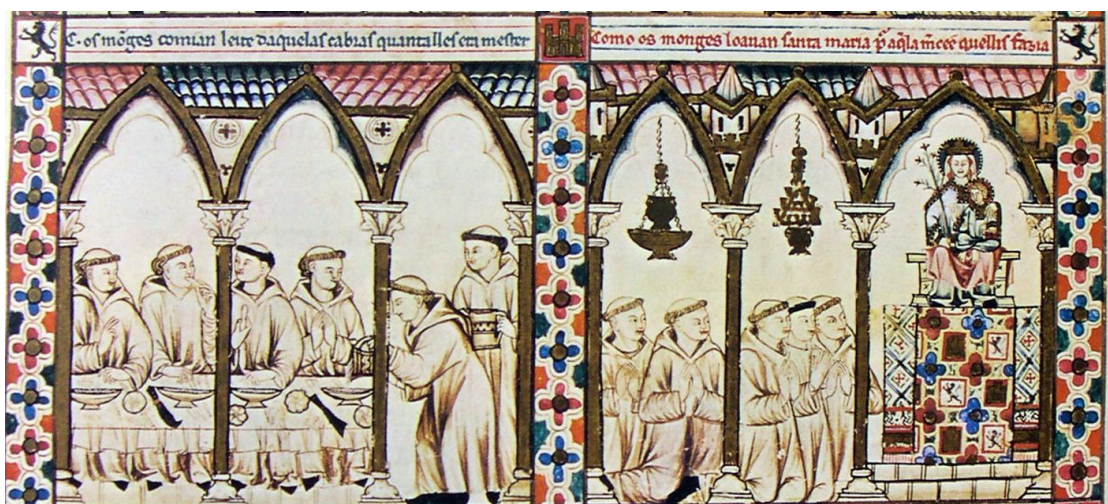 C. os mõges comian leite daquelas cabras quantalles era mester
Como os monges loavan santa maria p̃ aq̃la m̃cee quellis fazia